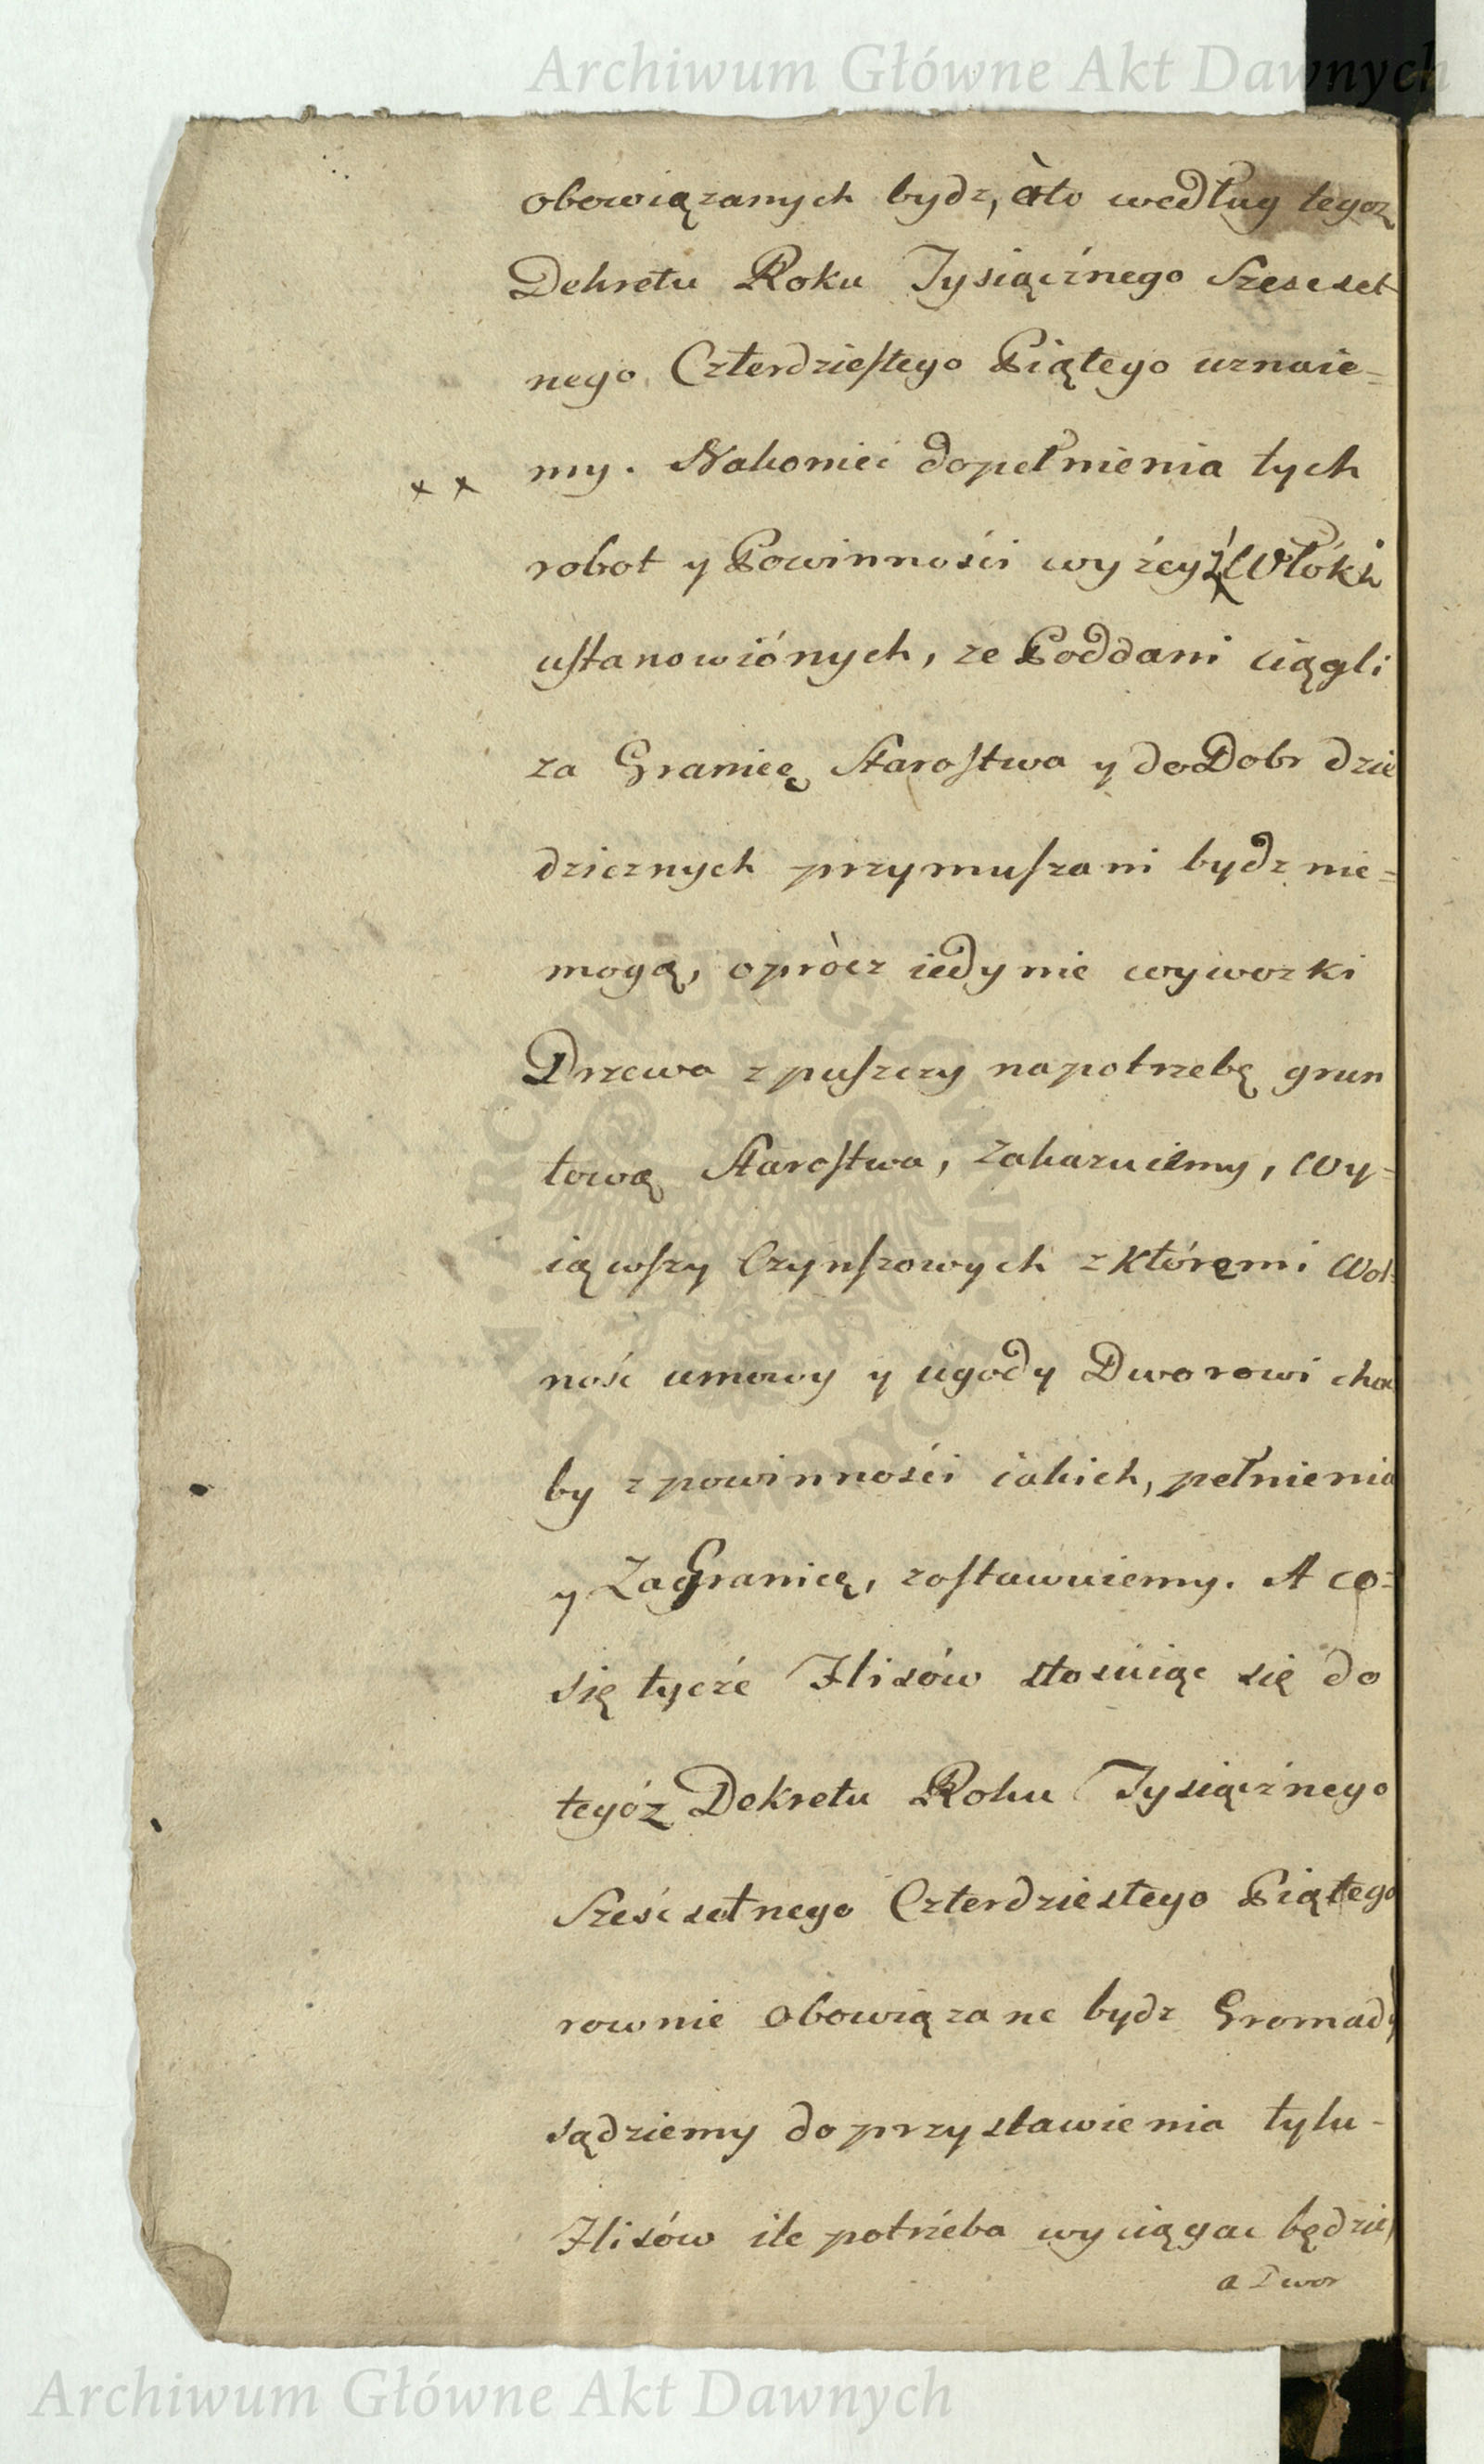 Archiwum Główne Akt Dawnych
obowiązanych bydz, àto według tegoz
Dekretu Roku Tysiącżnego Szescset
nego Czterdziestego Piątego uznaie=
my. Nakoniec dopełnienia tych
robot y Powinnosci wyżey ż Włóki
ustanowiónych, ze Poddani ciągli
za Granicę Starostwa y do Dobr dzie
dzicznych przymuszani bydz nie=
mogą, oprócz iedynie wywozki
Drzewa z puszczy na potrzebę grun
towę Starostwa, zakazuiemy, Wy=
iąwszy Czynszowych z któremi Wol=
ność umowy y ugody Dworowi cho
by z powinności iakich, pełnienia
y Za Granicę, zostawuiemy. A co=
się tycże Flisów stosuiąc się do
tegóż Dekretu Roku Tysiącżnego
Sześćsetnego Czterdziestego Piątego
rownie obowiązane bydz Gromady
sądziemy do przystawienia tylu-
Flisów ile potrżeba wyciągac będzie
a Dwor
Archiwum Główne Akt Dawnych